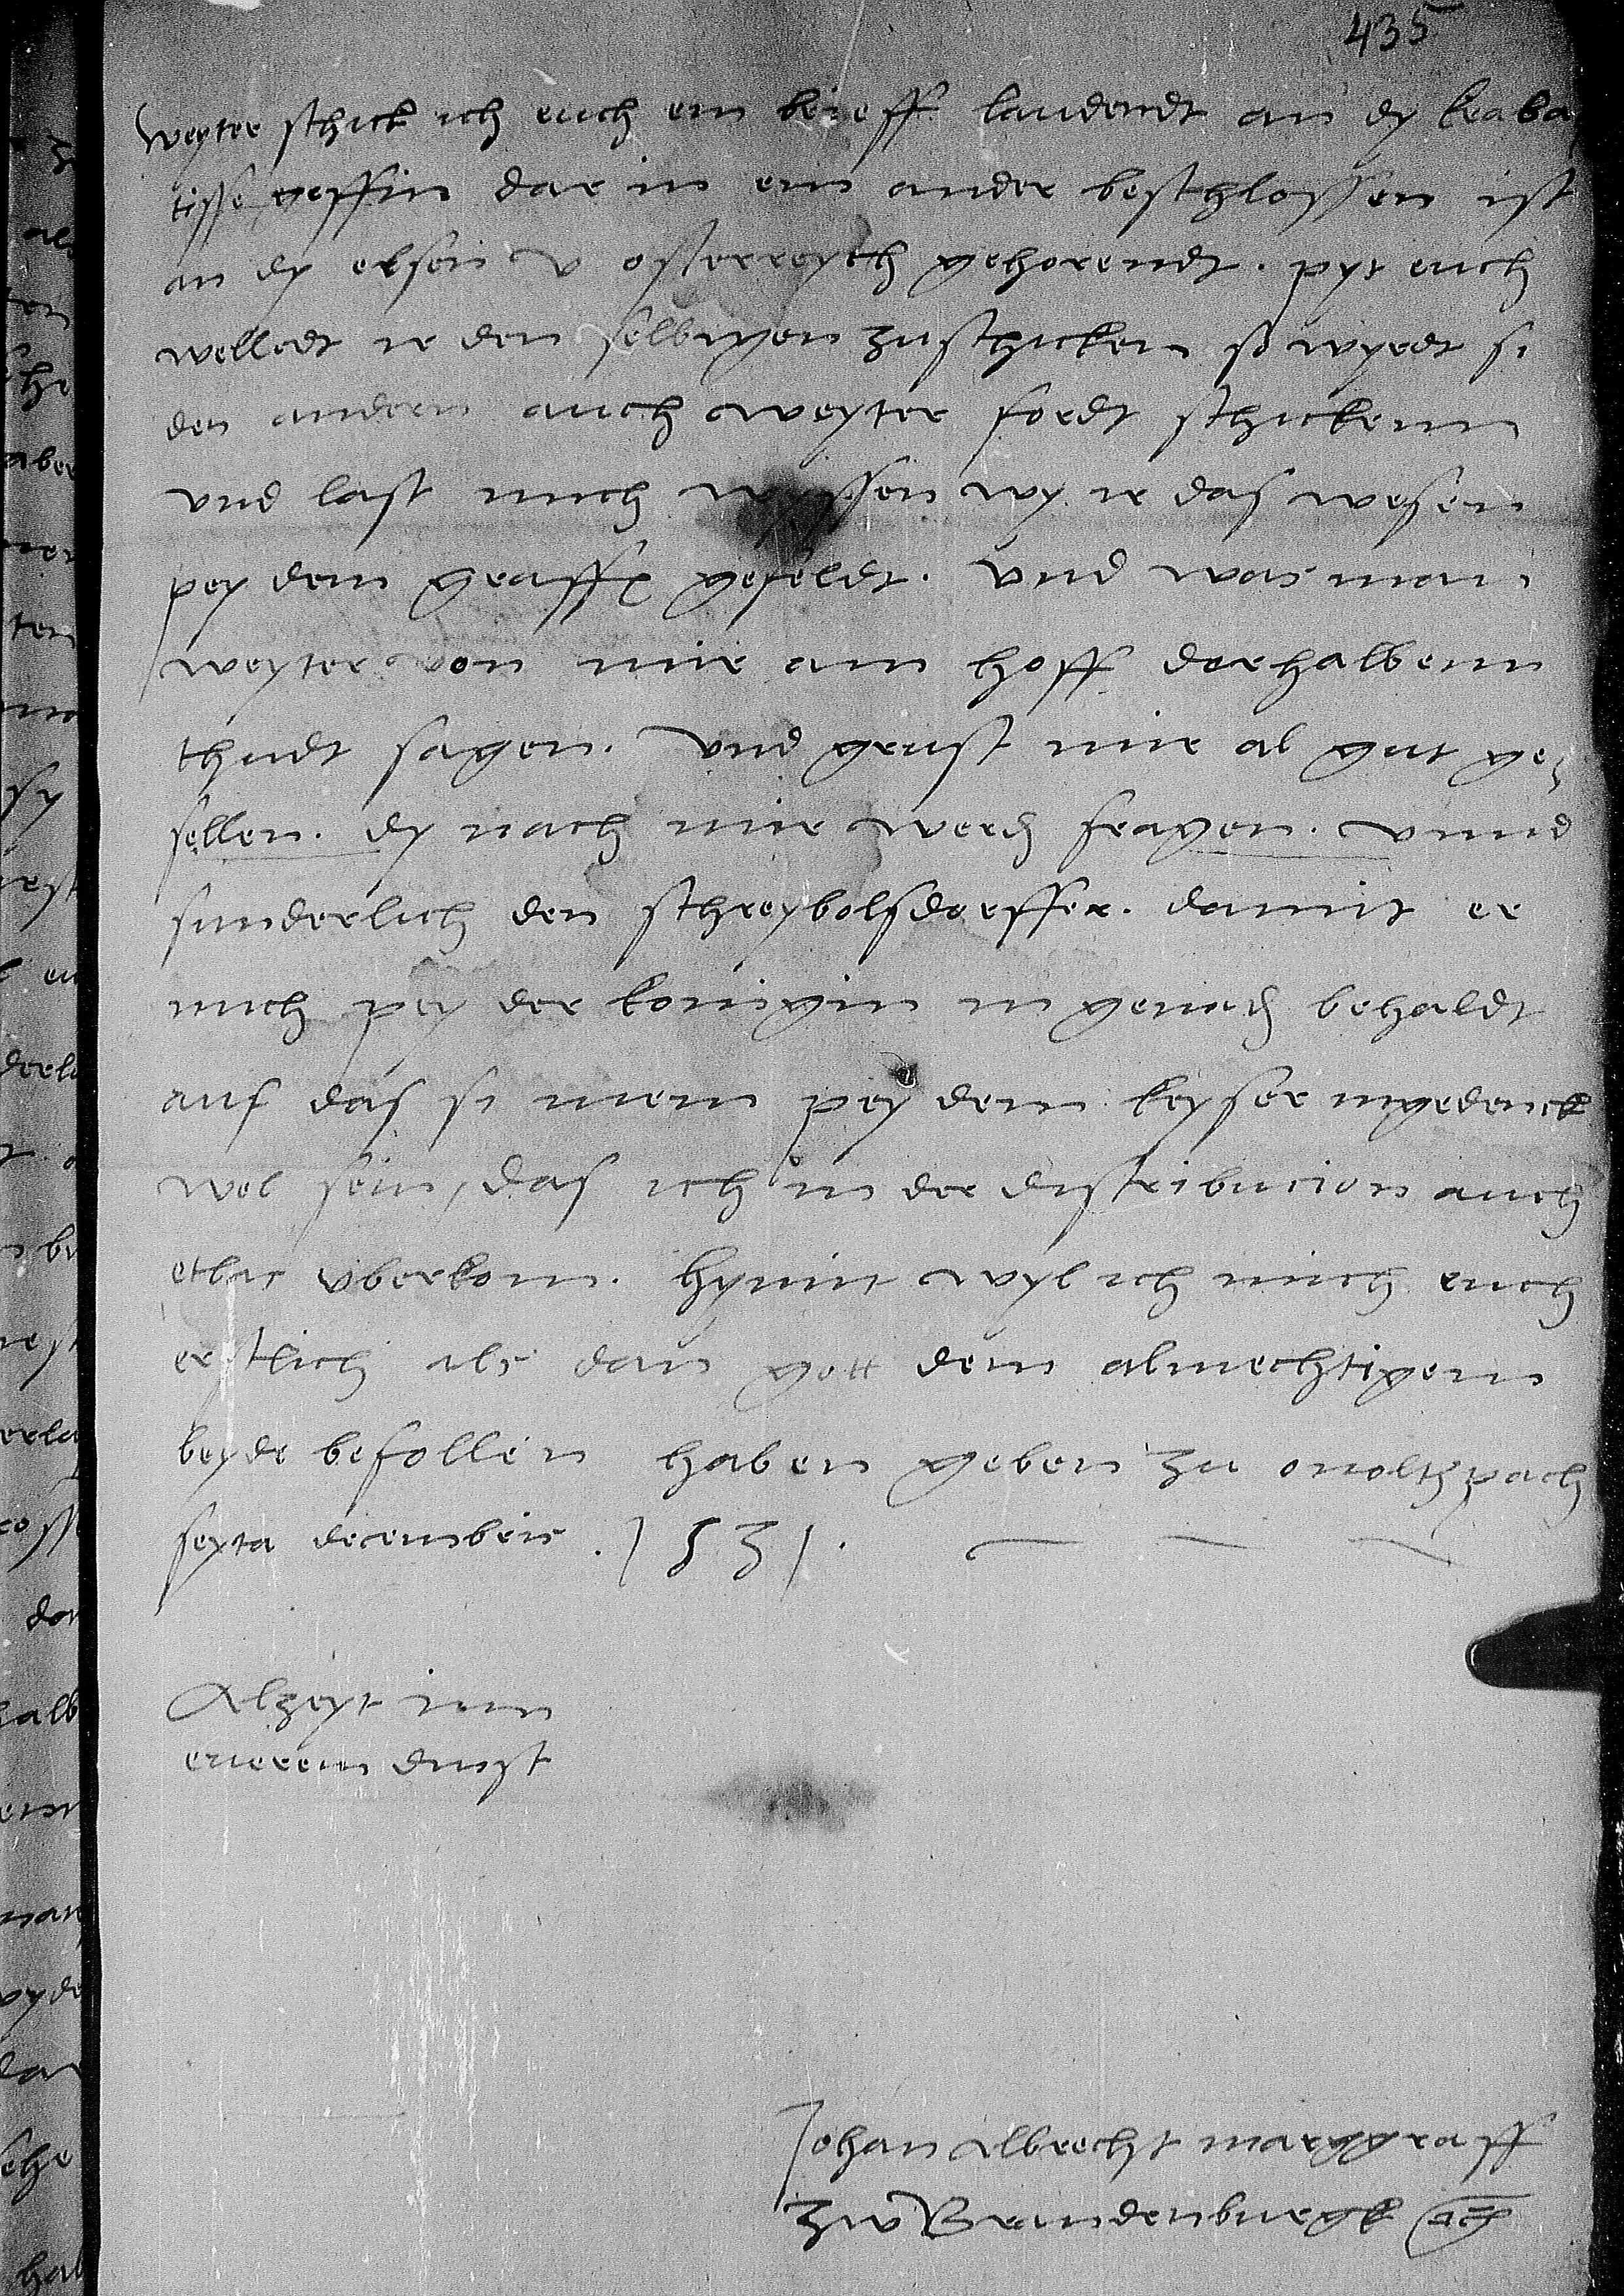 435
Weyter schick ich euch ein brieff laudendt an dy kraba
tisse greffin dar in ein ander beschlossen ist
an dy v osterreych gehorendt. pyt euch
welledt ir den selbigen zuschicken so wyrdt si
den andern auch weyter fordt schicken
vnd last mich wyssen wy ir das wesen
pey dem graffen gefeldt. vnd was man
weyter von mir am hoff derhalbenn
thudt sagen. vnd grust mir al gut ge-
sellen. dy nach mir werden fragen. vnnd
sunderlich den schreybolsdorffer. damit er
mich pey der konigin in genaden behaldt
auf das si mein pey dem keyser ingedenck
wel sein, das ich in der distribucion auch
etbas vberkom. hymit wyl ich mich euch
erstlich als dan gott dem almechtigenn
beyde befollen haben geben zu onoltzpach
sexta decembris .1531.
Alzeyt inn
euerem dinst
Johan Albrecht marggraff
Zw Brandenburgk